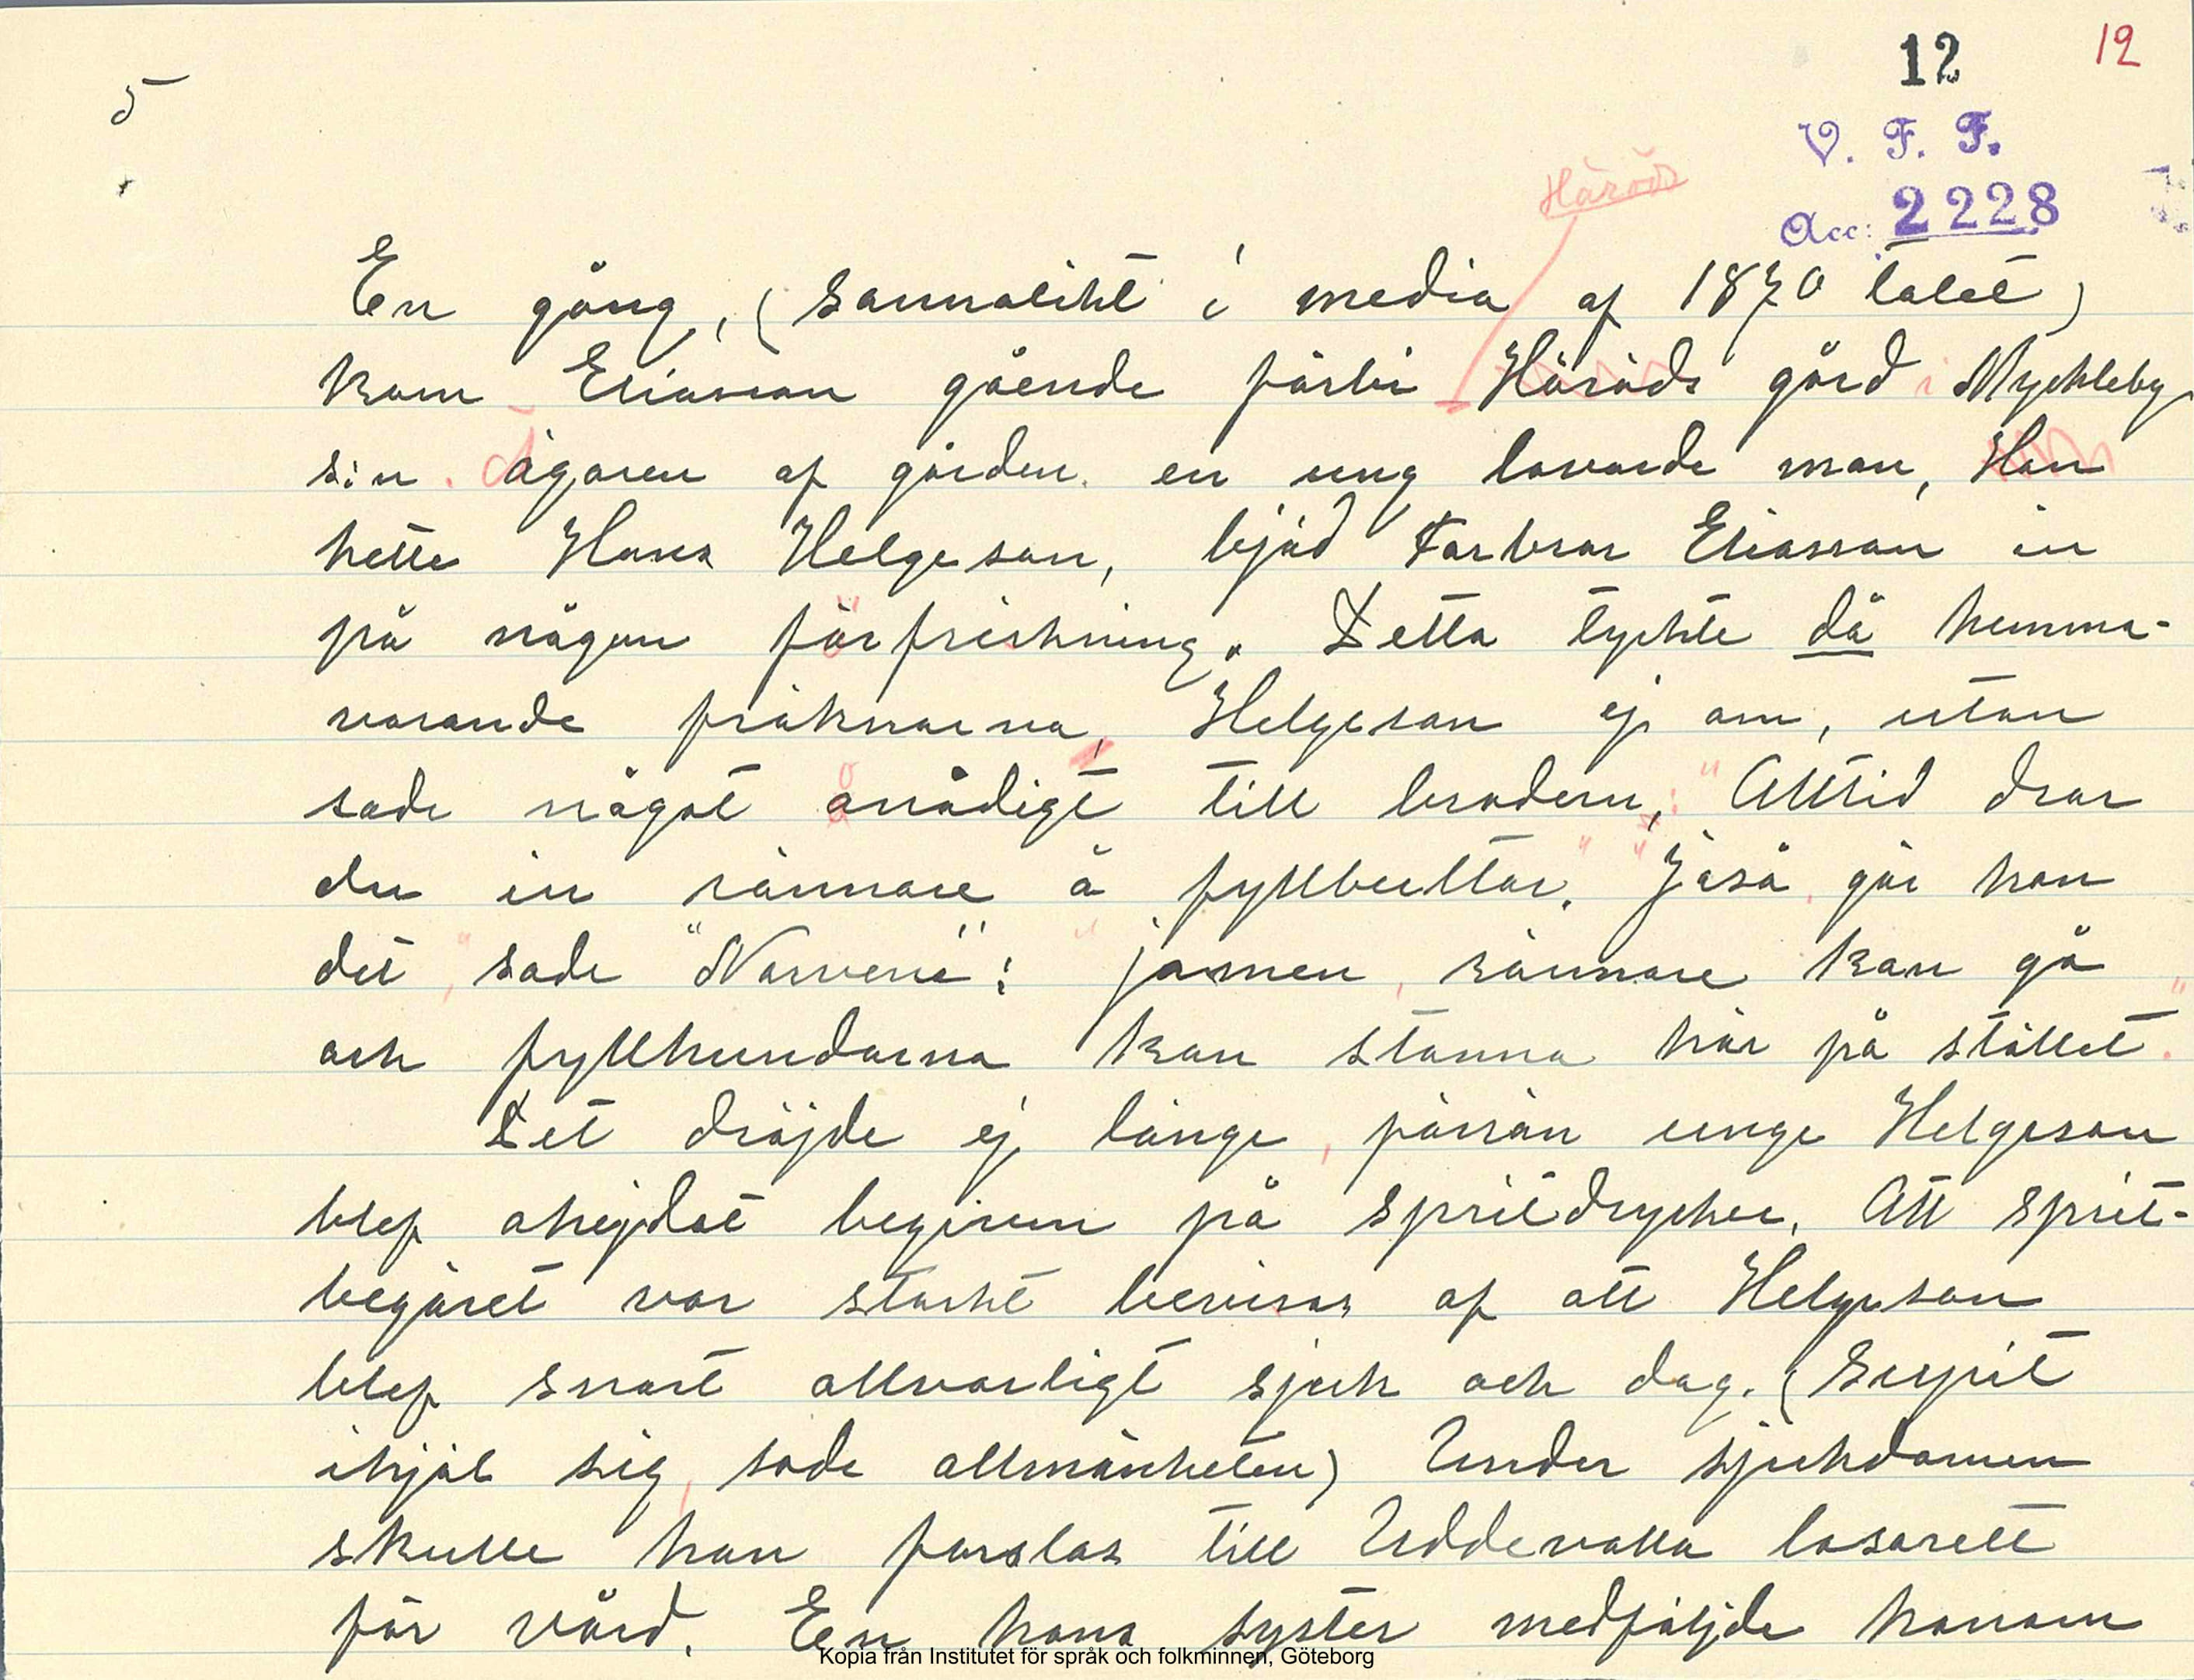 5
12
12
V. F. F.
Acc: 2228
Häröd
En gång, (sannolikt i media af 1870 talet)
kom Eliasson gående förbi Häröds gård i Myckleby
s:n. Ägaren af gården en ung lovande man, Han
hette Hans Helgeson, bjöd Farbror Eliasson in
på någon förfriskning. Detta tyckte då hemma-
varande fröknarna, Helgeson ej om, utan
sade något onådigt till brodern: "Alltid drar
du in rännare å fyllbultar." "Jaså, gör han
det", sade "Norveni": "jamen, rännare kan gå
och fyllhundarna kan stanna här på stället."
Det dröjde ej länge, förrän unge Helgeson
blef ohejdat begiven på spritdrycker. Att sprit-
begäret var starkt bevisas af att Helgeson
blef snart allvarligt sjuk och dog. (Supit
ihjäl sig, sade allmänheten) Under sjukdomen
skulle han forslas till Uddevalla lasarett
för vård. En hans syster medföljde honom
Kopia från Institutet för språk och folkminnen, Göteborg